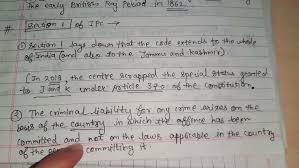 the early British Raj Period in 1862.
# Section 1 of IPC →
① Section 1 lays down that the code extends to the whole
of India (and also to the Jammu and Kashmir).
(In 2019, the centre scrapped the special status granted
to J and K under Article 370 of the Constitution.
② The criminal liability for any crime arises on the
basis of the country in which the offence has been
committed and not on the laws applicable in the country
of the committing it.